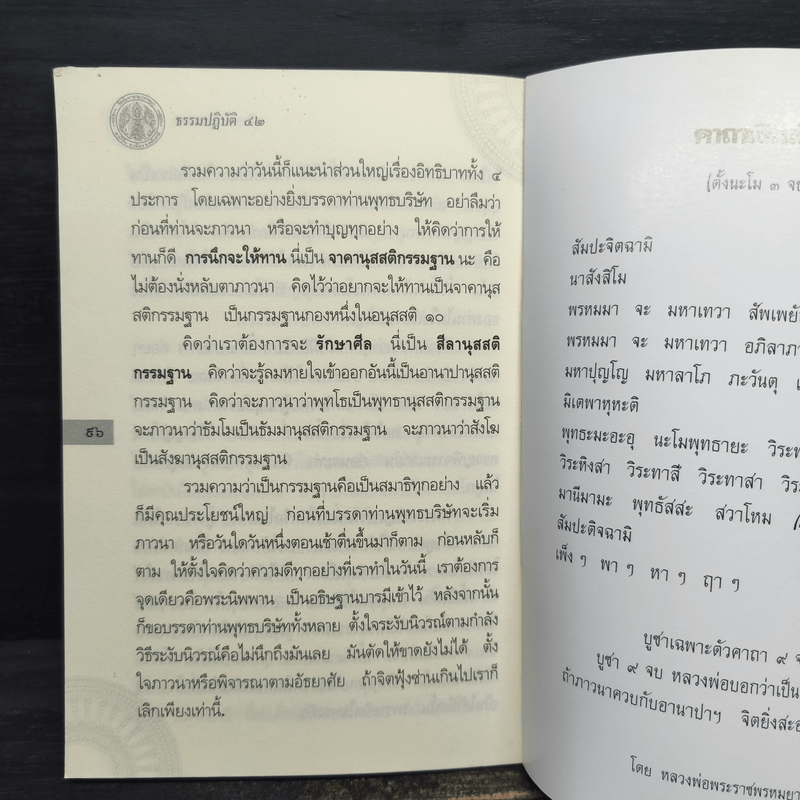 ธรรมปฏิบัติ ๔๒
รวมความว่าวันนี้ก็แนะนำส่วนใหญ่เรื่องอิทธิบาททั้ง ๔
ประการ โดยเฉพาะอย่างยิ่งบรรดาท่านพุทธบริษัท อย่าลืมว่า
ก่อนที่ท่านจะภาวนา หรือจะทำบุญทุกอย่าง ให้คิดว่าการให้
ทานก็ดี การนึกจะให้ทาน นี่เป็น จาคานุสสติกรรมฐาน นะ คือ
ไม่ต้องนั่งหลับตาภาวนา คิดไว้ว่าอยากจะให้ทานเป็นจาคานุส
สติกรรมฐาน เป็นกรรมฐานกองหนึ่งในอนุสสติ ๑๐
คิดว่าเราต้องการจะ รักษาศีล นี่เป็น สีลานุสสติ
กรรมฐาน คิดว่าจะรู้ลมหายใจเข้าออกอันนี้เป็นอานาปานุสสติ
กรรมฐาน คิดว่าจะภาวนาว่าพุทโธเป็นพุทธานุสสติกรรมฐาน
จะภาวนาว่าธัมโมเป็นธัมมานุสสติกรรมฐาน จะภาวนาว่าสังโฆ
เป็นสังฆานุสสติกรรมฐาน
รวมความว่าเป็นกรรมฐานคือเป็นสมาธิทุกอย่าง แล้ว
ก็มีคุณประโยชน์ใหญ่ ก่อนที่บรรดาท่านพุทธบริษัทจะเริ่ม
ภาวนา หรือวันใดวันหนึ่งตอนเช้าตื่นขึ้นมาก็ตาม ก่อนหลับก็
ตาม ให้ตั้งใจคิดว่าความดีทุกอย่างที่เราทำในวันนี้ เราต้องการ
จุดเดียวคือพระนิพพาน เป็นอธิษฐานบารมีเข้าไว้ หลังจากนั้น
ก็ชอบรรดาท่านพุทธบริษัททั้งหลาย ตั้งใจระงับนิวรณ์ตามกำลัง
วิธีระงับนิวรณ์คือไม่นึกถึงมันเลย มันตัดให้ขาดยังไม่ได้ ตั้ง
ใจภาวนาหรือพิจารณาตามอัธยาศัย ถ้าจิตฟุ้งซ่านเกินไปเราก็
เลิกเพียงเท่านี้.
๕๖
(ตั้งนะโม ๓ จบ
สัมปะจิตฉามิ
นาสังสิโม
พรหมมา จะ มหาเทวา
พรหมมา จะ มหาเทวา
มหาปุญโญ มหาลาโภ ภะวันตุ
มิเตพาหุหะติ
พุทธะมะอะอุ นะโมพุทธายะ
วิระหิงสา วิระทาสี วิระทาสา
มานีมามะ พุทธัสสะ สวาโหม
สัมปะติจฉามิ
เพ็ง ๆ พา ๆ หา ๆ ฤา ๆ
บูชาเฉพาะตัวคาถา ๙
บูชา ๙ จบ หลวงพ่อบอกว่าเป็น
ถ้าภาวนาควบกับอานาปาฯ
โดย หลวงพ่อพระราชพรหมยา